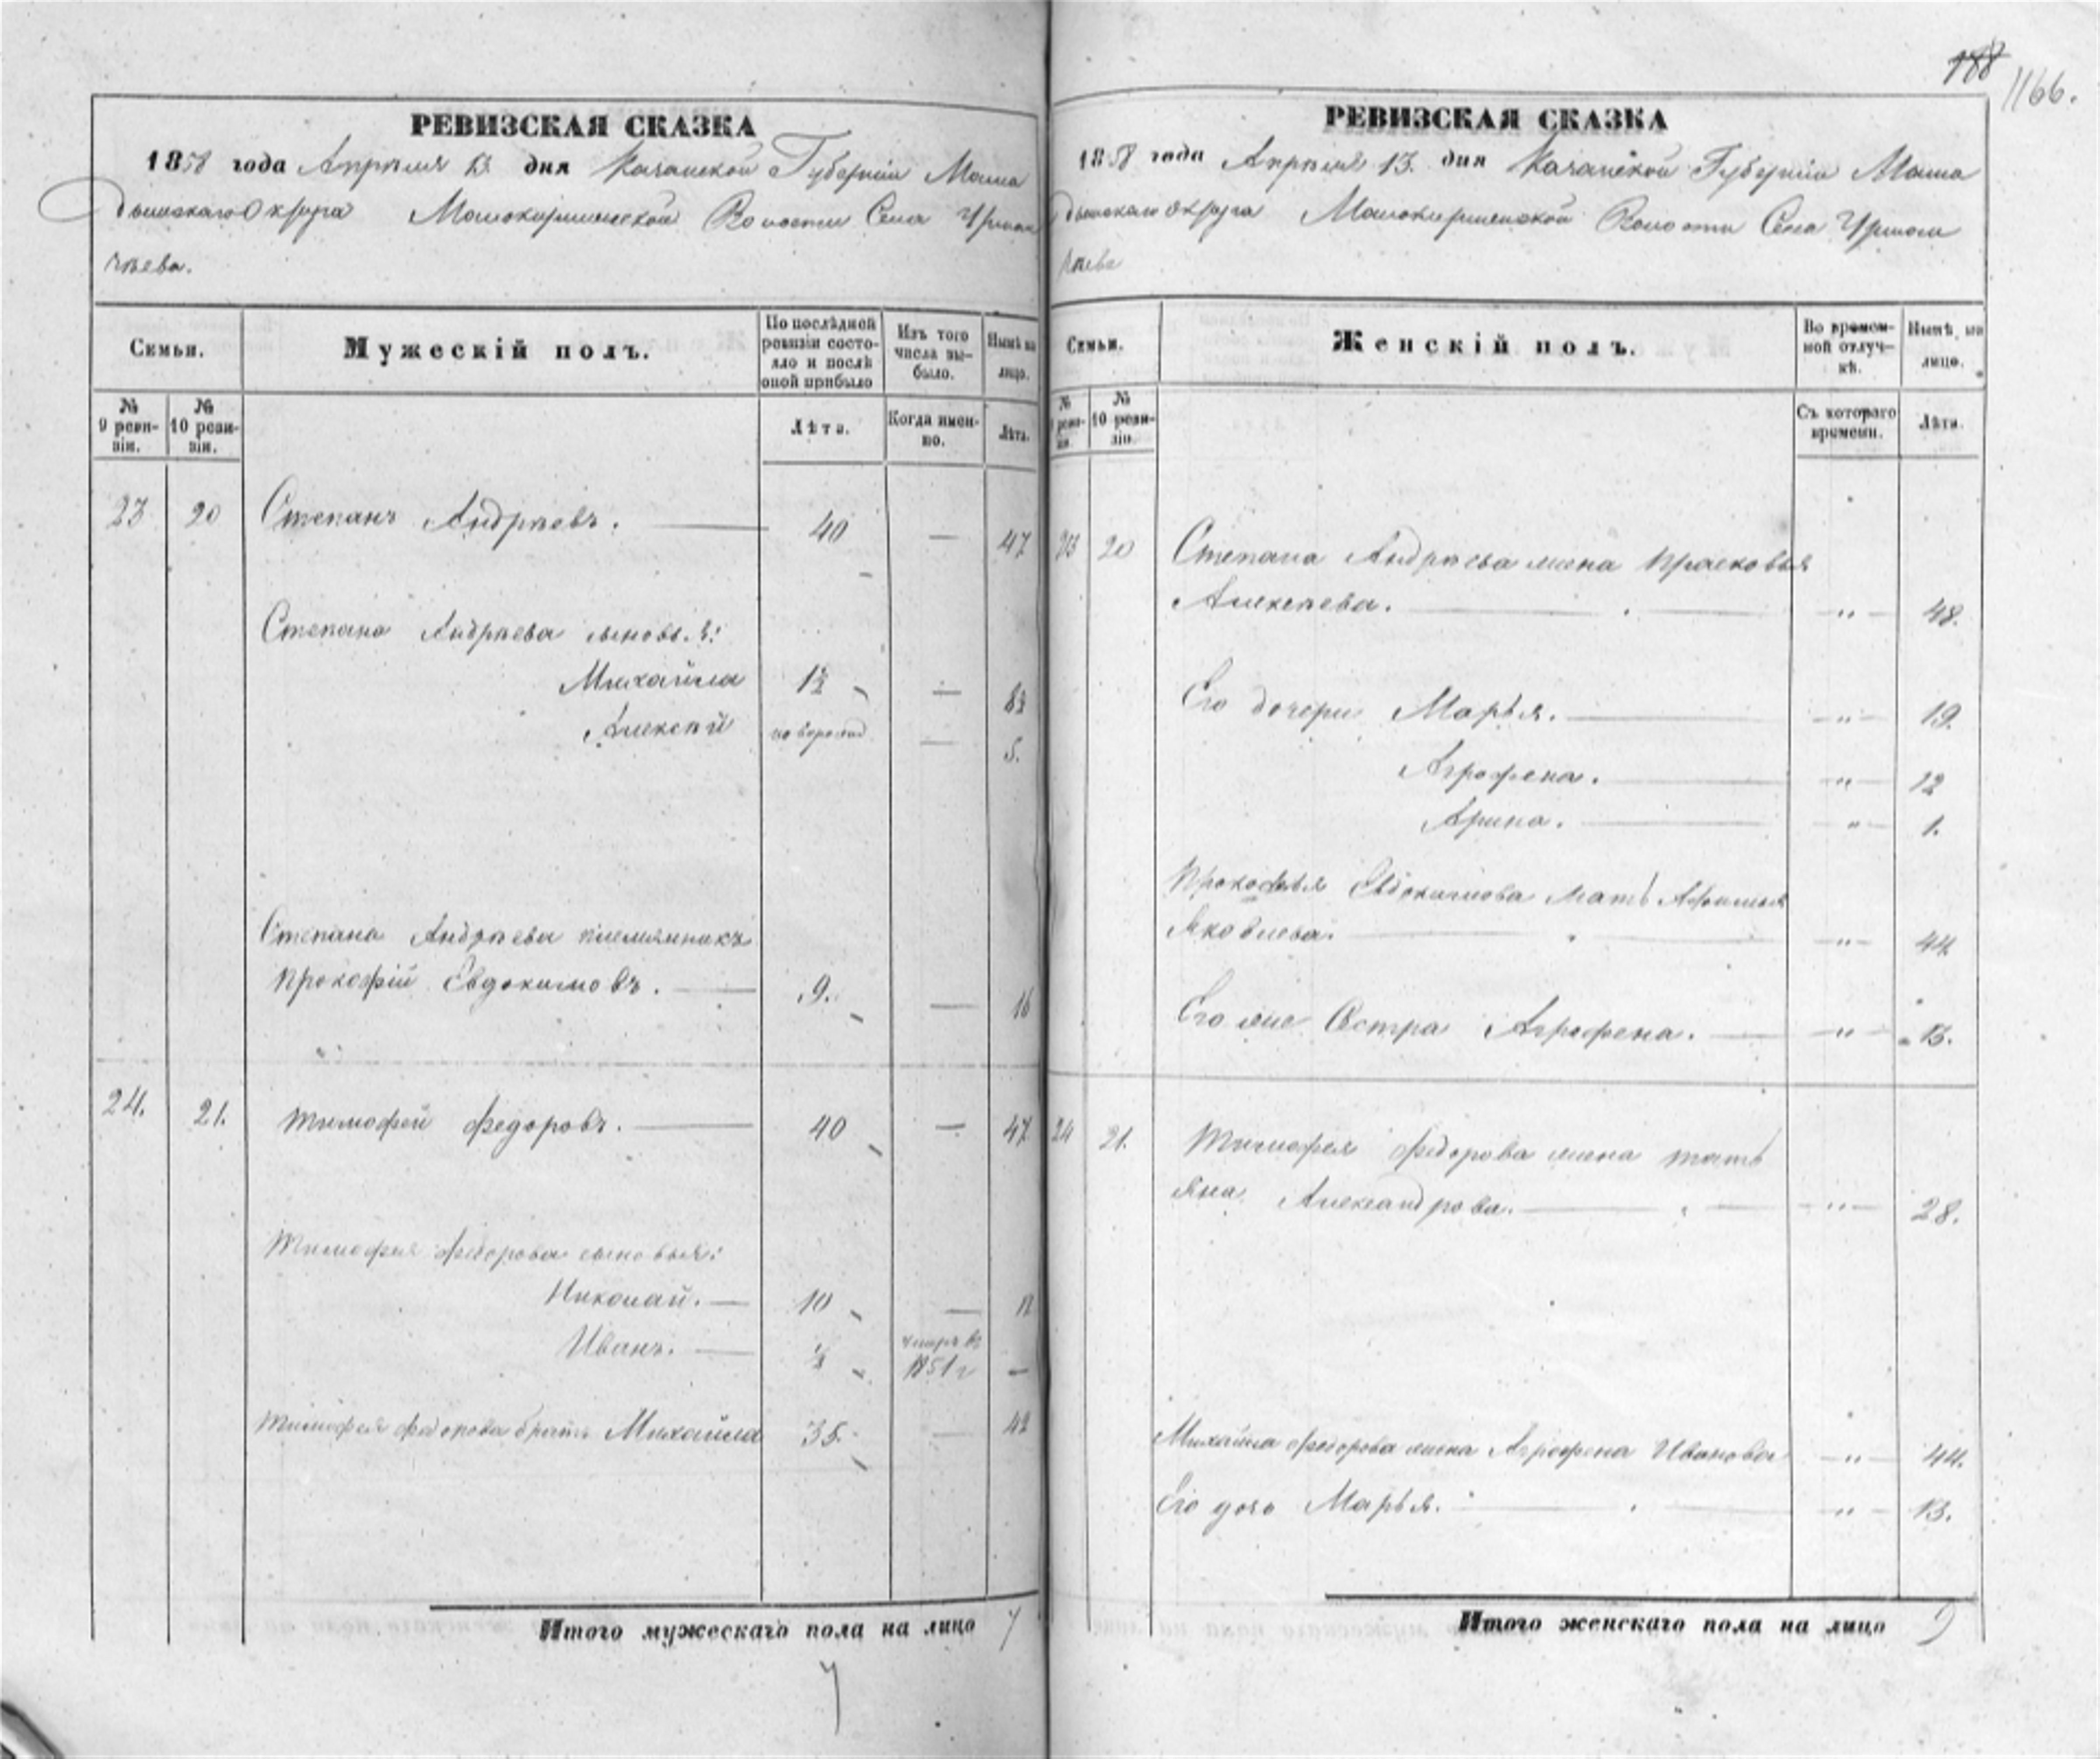 188
1166.
РЕВИЗСКАЯ СКАЗКА
1858 года Апрѣля 13 дня Казанской Губерніи Мама
дышскаго Округа Малокирменской Волости Села Урясь
чѣева.
Семьи.
Мужескій полъ.
По послѣдней ревизіи состо-
яло и послѣ
оной прибыло
Изъ того
числа вы-
было.
Нынѣ на
лицо.
№
9 реви-
зіи.
№
10 реви-
зіи.
Лѣта.
Когда имен-
но.
Лѣта.
23 20 Степанъ Андрѣевъ. 40 — 47
Степана Андрѣева сыновья:
Михайла 1½ —
Алексѣй новорожд — 5.
Степана Андрѣева племянникъ
Прокофій Евдокимовъ. 9. — 16
24. 21. Тимофей Федоровъ. 40 — 47
Тимофея Федорова сыновья:
Николай. — 10 —
Иванъ. — ½ умеръ въ
1851 г —
Тимофея Федорова братъ Михайла 35. — 42
Итого мужескаго пола на лицо 7
7
РЕВИЗСКАЯ СКАЗКА
1858 года Апрѣля 13. дня Казанской Губерніи Мама
дышскаго Округа Малокирменской Волости Села
чѣева
Семьи.
Женскій полъ.
Во времен-
ной отлуч-
кѣ.
Нынѣ на
лицо.
№
9 реви-
зіи.
№
10 реви-
зіи.
Съ котораго
времени.
Лѣта.
23 20 Степана Андрѣева жена Прасковья
Алексѣева. — " — 48.
Его дочери Марья. — " — 19.
Агрофена. — " — 12
Арина. — " — 1.
Прокофья Евдокимова мать Афимья
Яковлева. — " — 44
Его же Сестра Агрофена. — " — 13.
24 21. Тимофея Федорова жена Тать
яна Александрова. — " — 28.
Михайла Федорова жена Агрофена Иванова — " — 44.
Его дочь Марья. — " — 13.
Итого женскаго пола на лицо 9